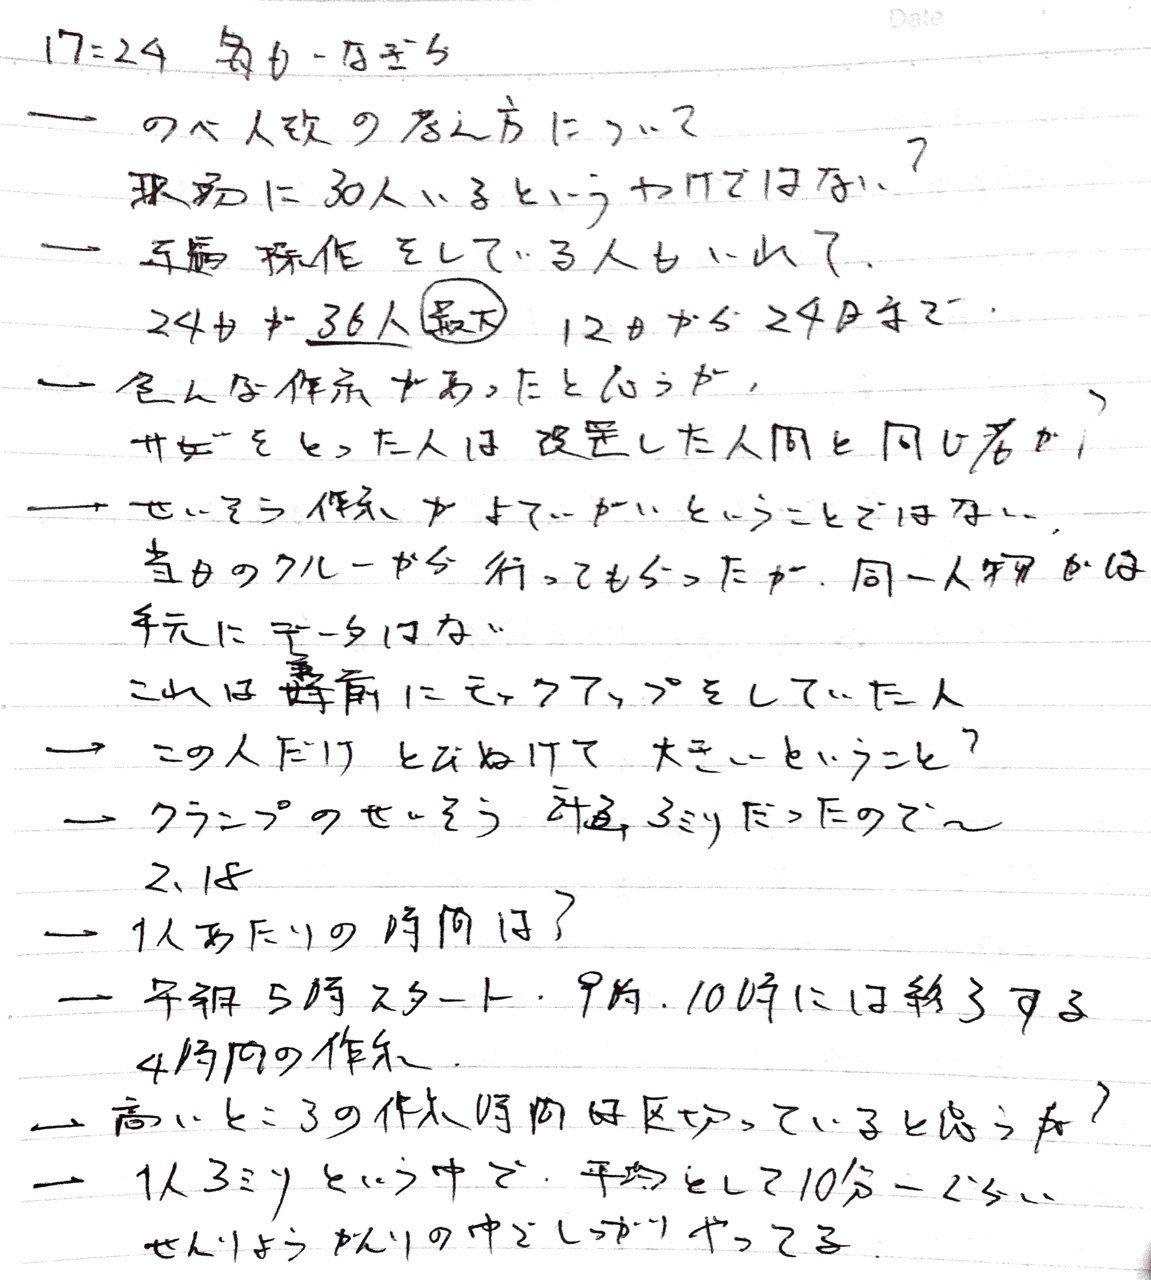 Date
17:24 なぎら
一 のべ人数の考え方について
現場に30人いるというわけではない?
一 車両操作をしている人もいれて、
24日が36人 最大 12日から24日まで.
一 色んな作業があったと思うが、
サンプルをとった人は設置した人間と同じ者か?
一 せいそう作業がよていがいということではない、
当日のクルーから行ってもらったが、同一人物かは
手元にデータはない
これは事前にモックアップをしていた人
一 この人だけとびぬけて大きいということ?
一 クランプのせいそう 計画、3ミリだったので〜
2.18
一 1人あたりの時間は?
一 午前5時スタート.9時.10時には終了する
4時間の作業.
一 高いところの作業時間は区切っていると思うが?
一 1人3ミリという中で.平均として10分ーぐらい
せんりょうかんりの中でしっかりやってる.